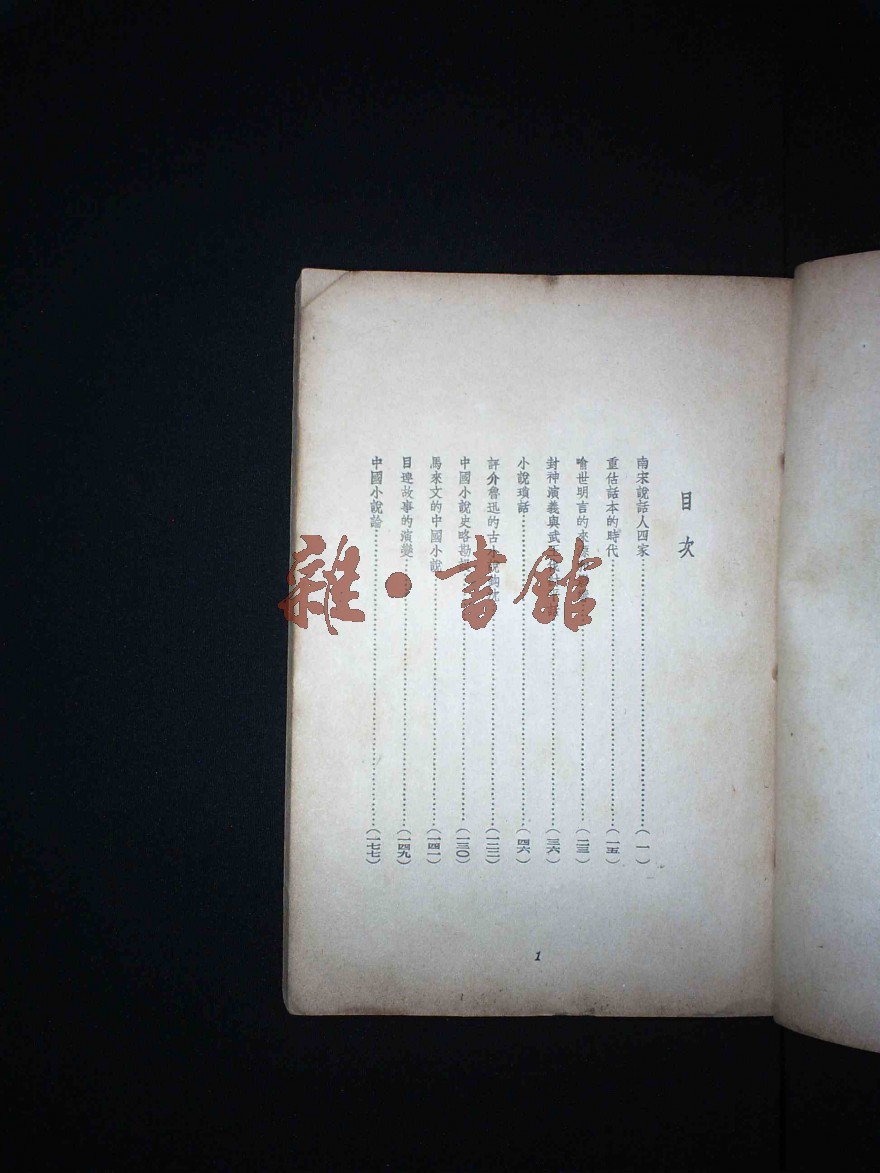 目次
南宋說話人四家…(一)
重估話本的時代…(一五)
喻世明言的來…(二三)
封神演義與武王…(三六)
小說瑣話…(四六)
評介魯迅的古小說鈎沉…(一二二)
中國小說史略勘…(一三〇)
馬來文的中國小說…(一四一)
目連故事的演變…(一四九)
中國小說論…(一七七)
1
雜·書館